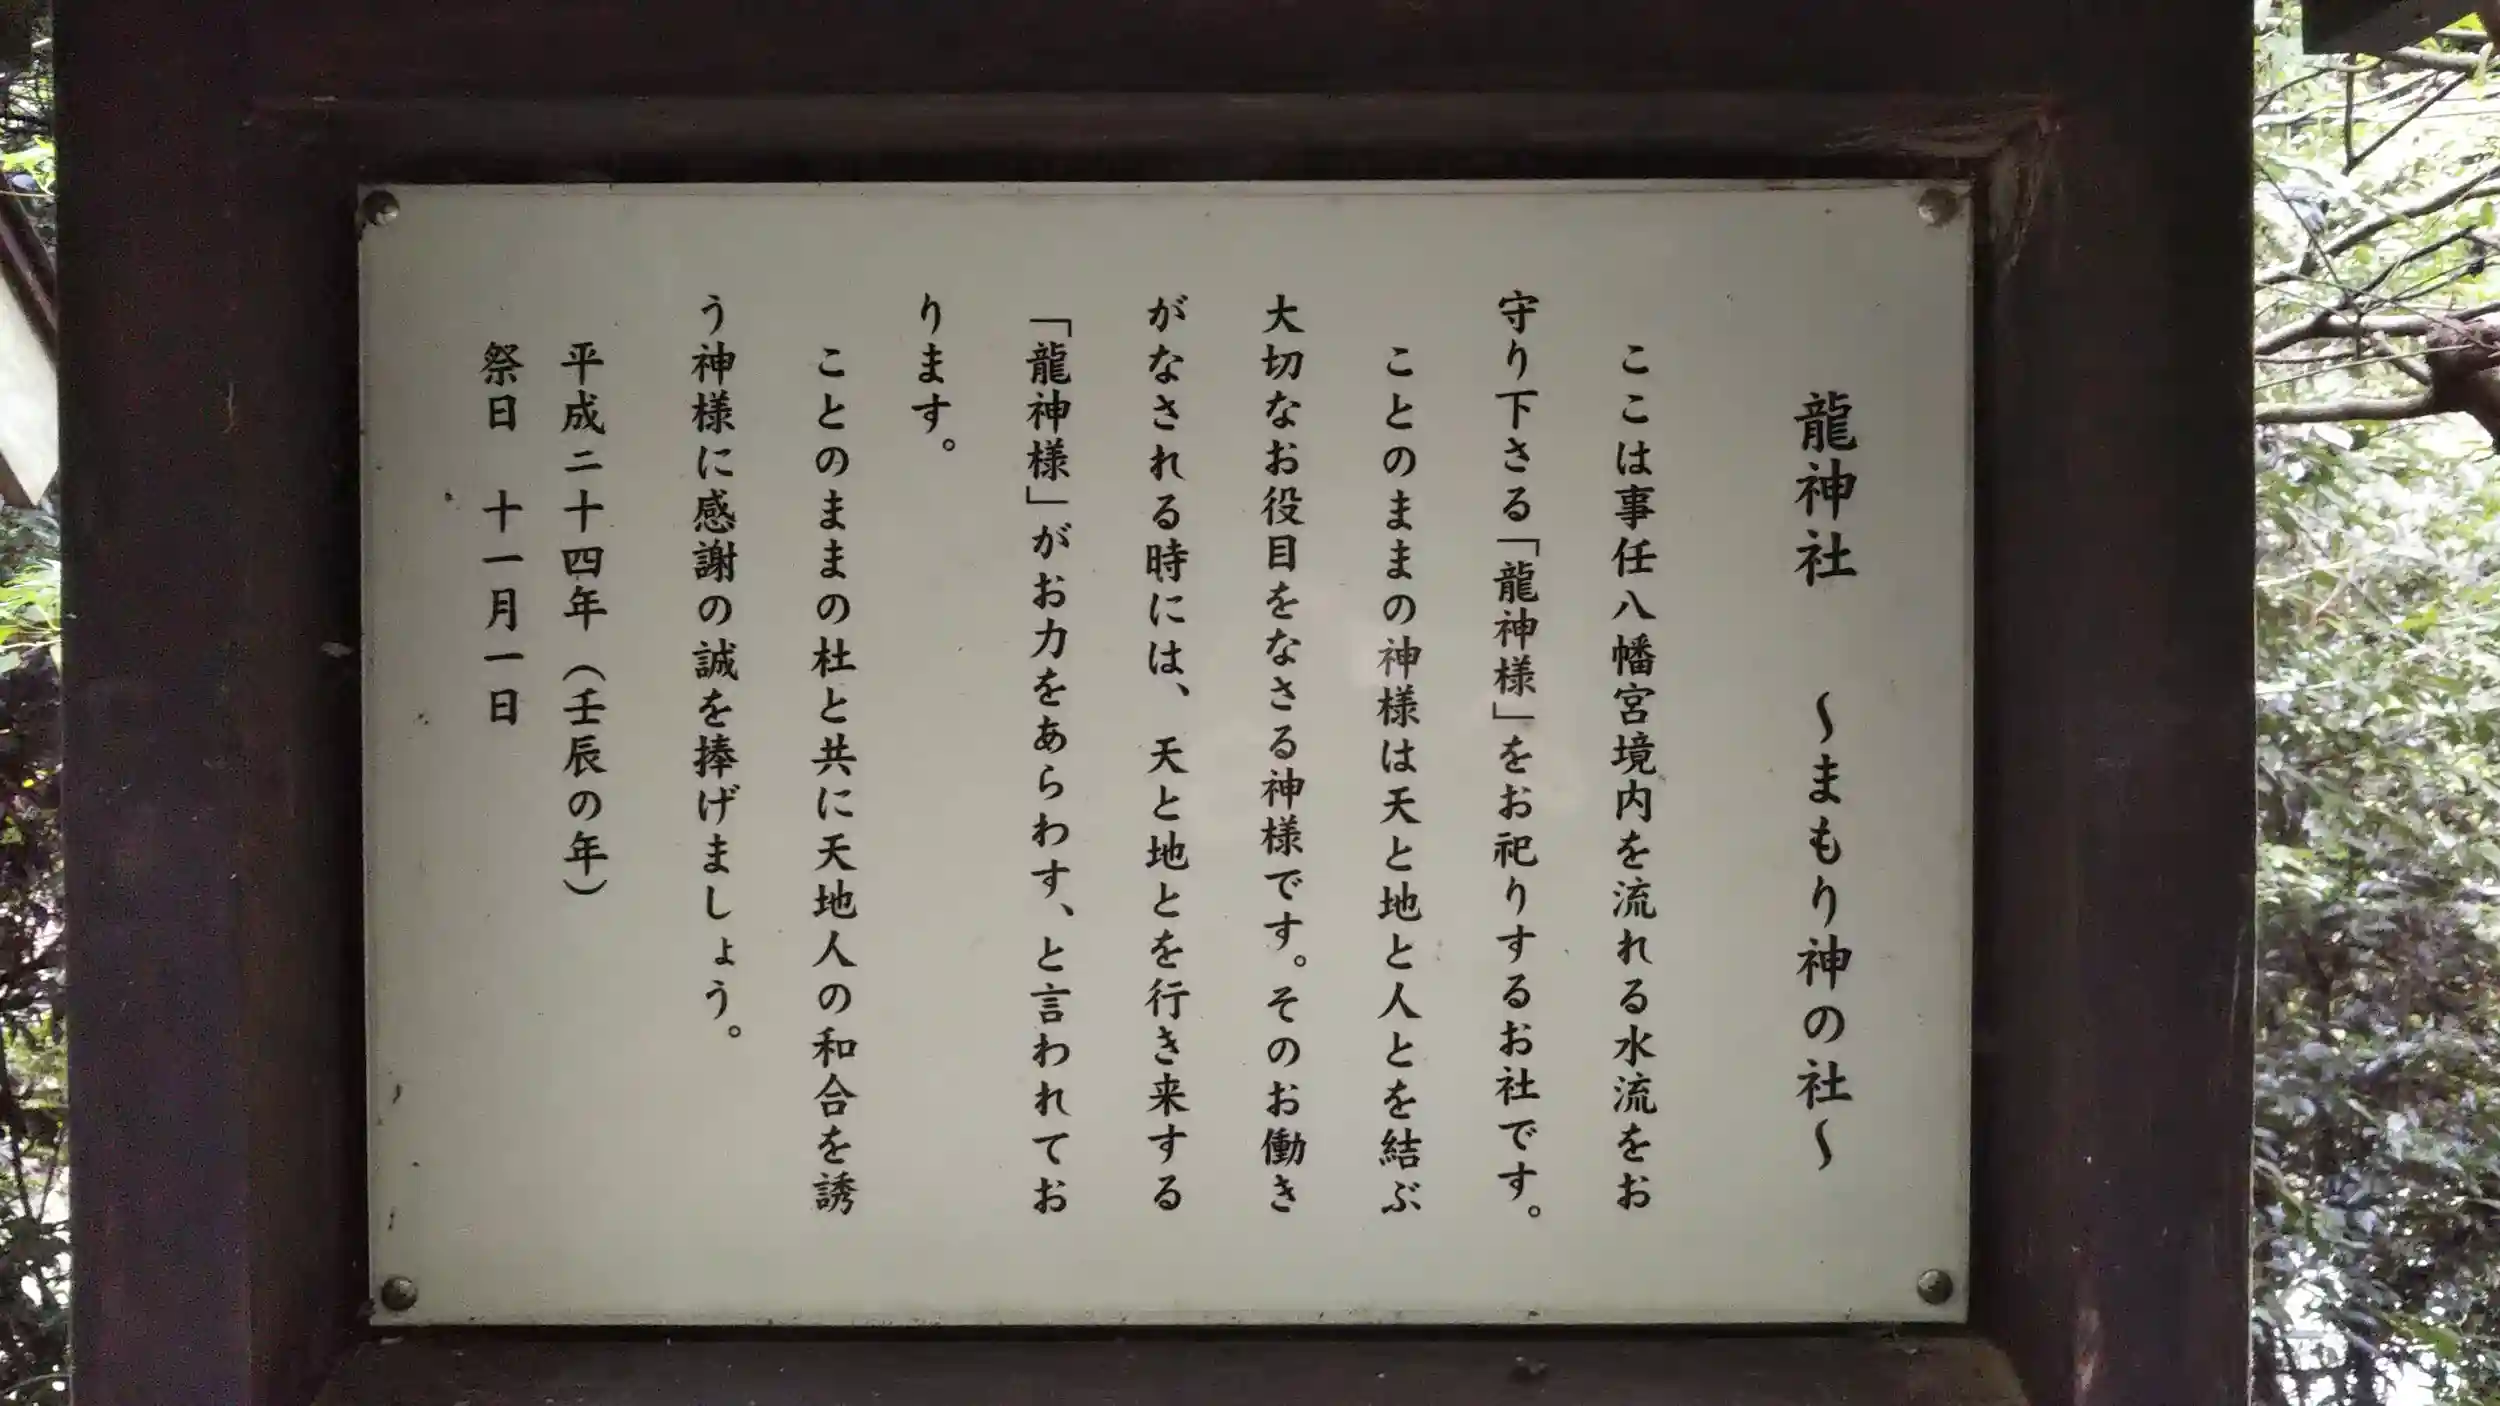 龍神社　～まもり神の社～
ここは事任八幡宮境内を流れる水流をお
守り下さる「龍神様」をお祀りするお社です。
ことのままの神様は天と地と人とを結ぶ
大切なお役目をなさる神様です。そのお働き
がなされる時には、天と地とを行き来する
「龍神様」がお力をあらわす、と言われてお
ります。
ことのままの杜と共に天地人の和合を誘
う神様に感謝の誠を捧げましょう。
平成二十四年（壬辰の年）
祭日　十一月一日